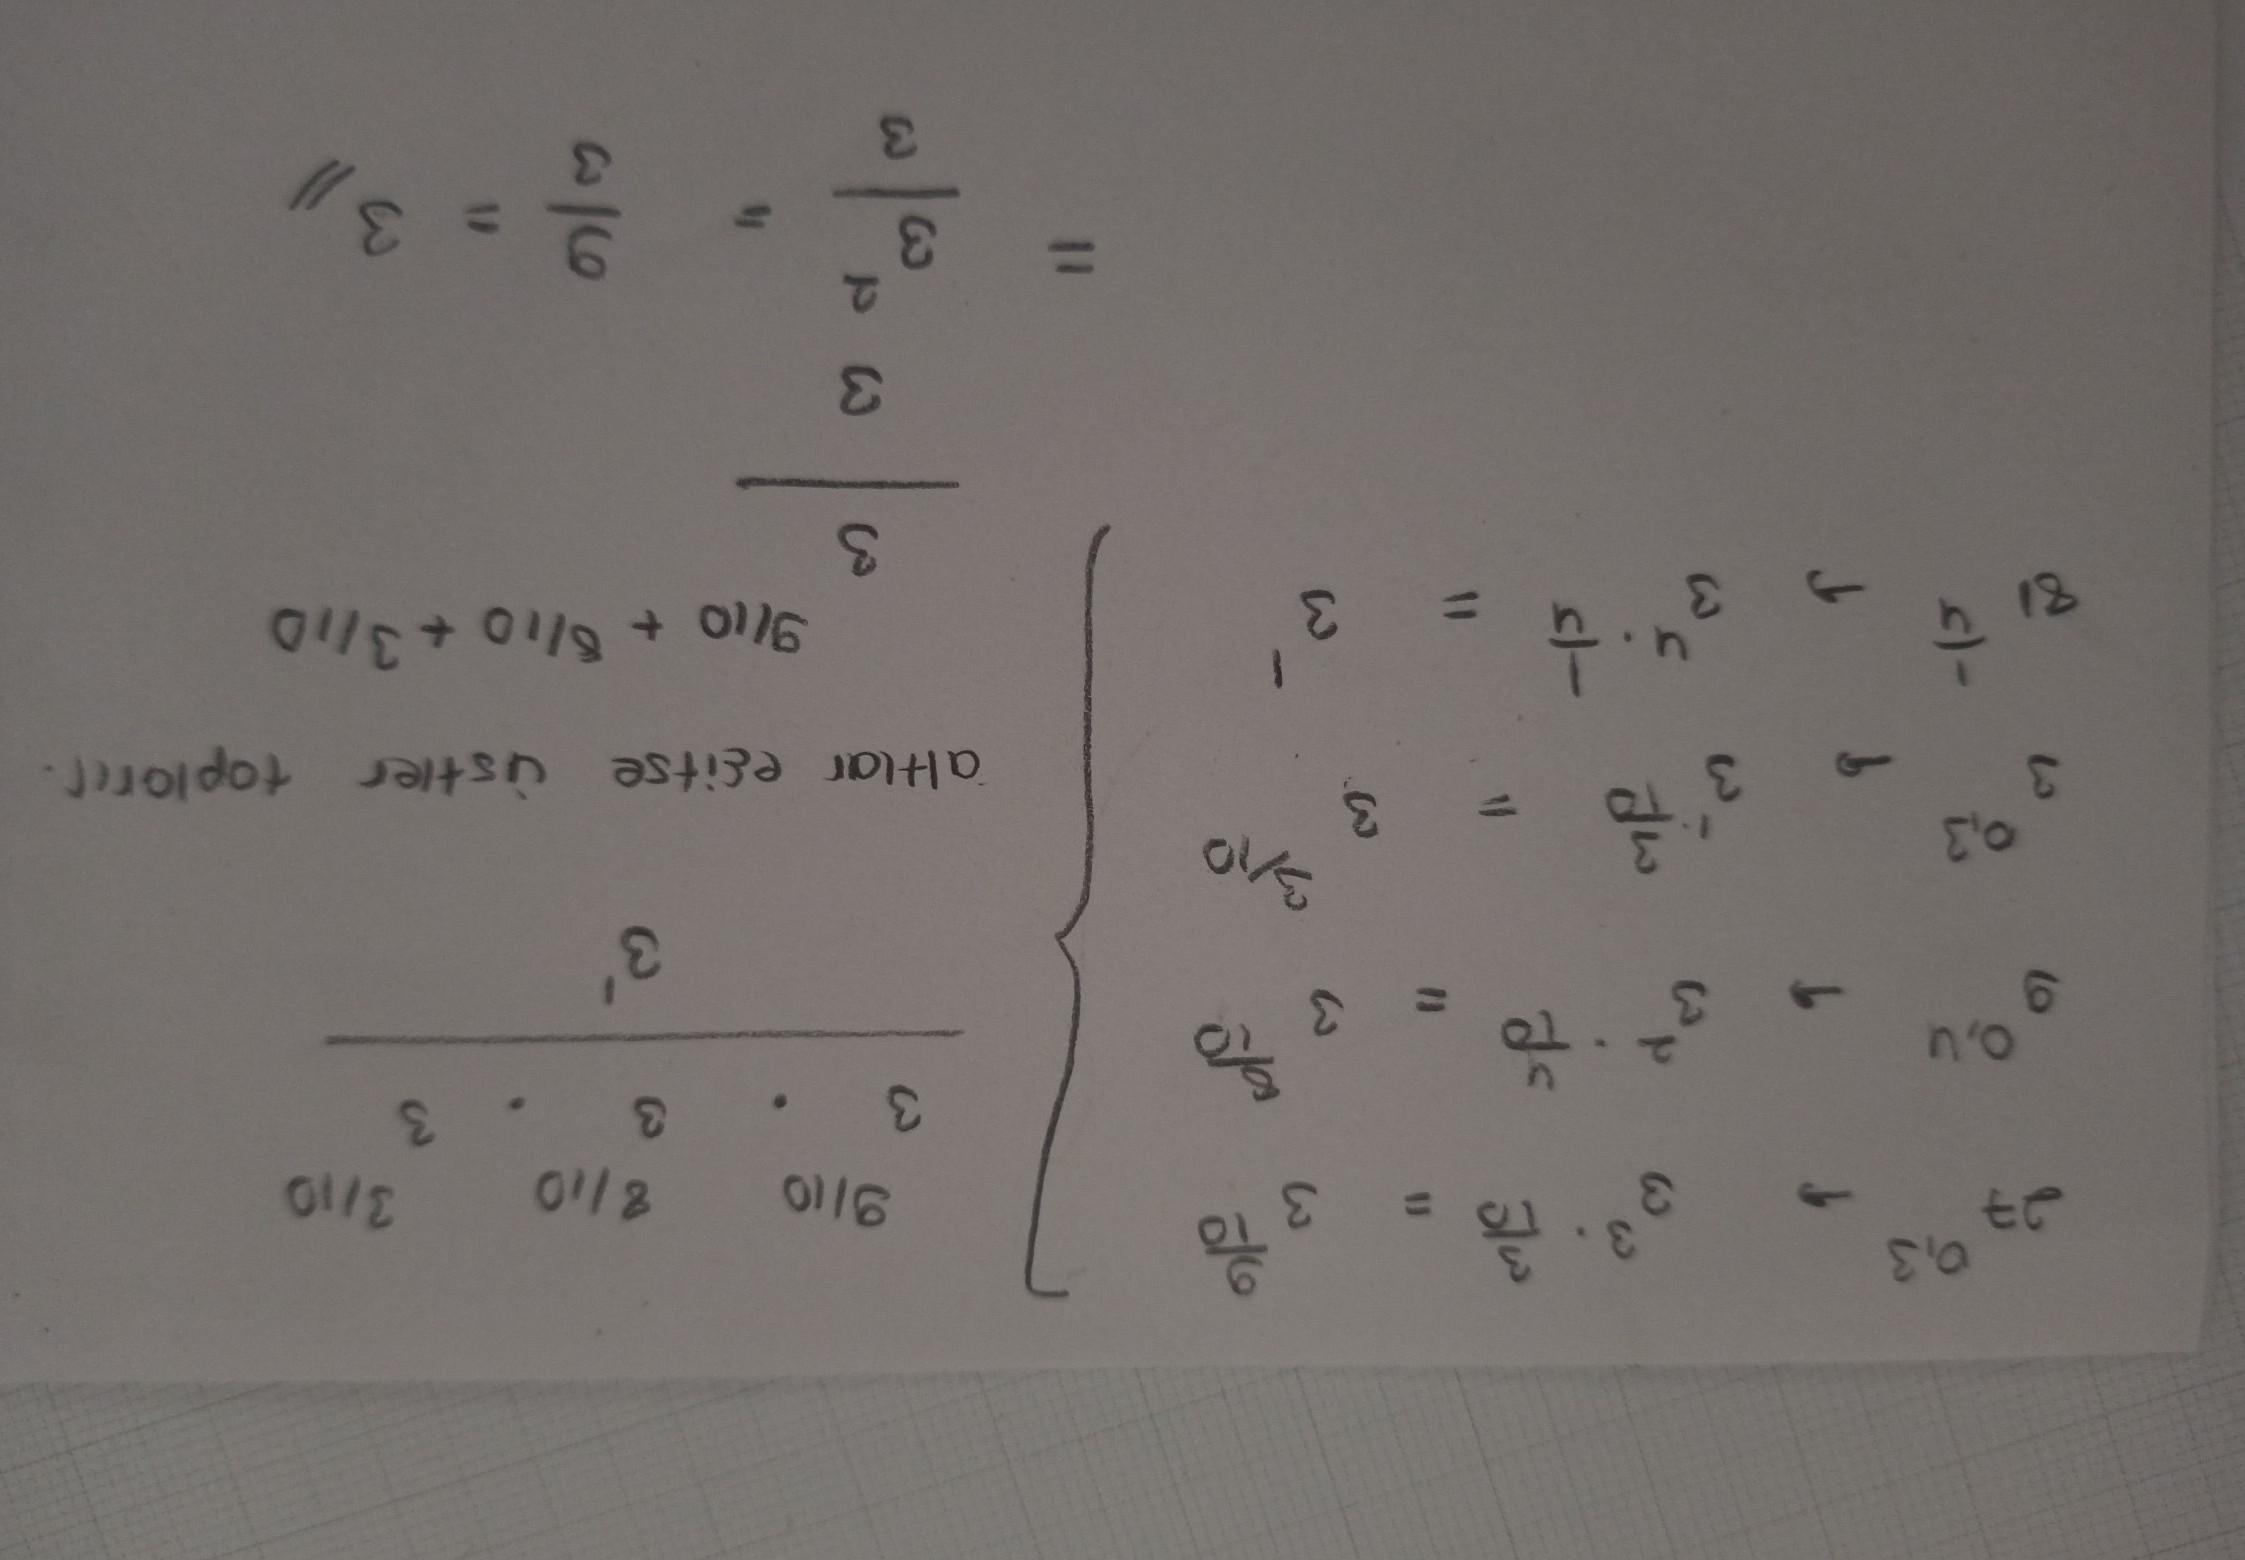 27^0,3 → 3^3·3/10 = 3^9/10
9^0,4 → 3^2·4/10 = 3^8/10
3^0,3 → 3^1·3/10 = 3^3/10
81^1/4 → 3^4·1/4 = 3^1
3^9/10 · 3^8/10 · 3^3/10
3^1
altlar eşitse üstler toplanır.
3^9/10 + 8/10 + 3/10
3
= 3^2/3 = 9/3 = 3 //